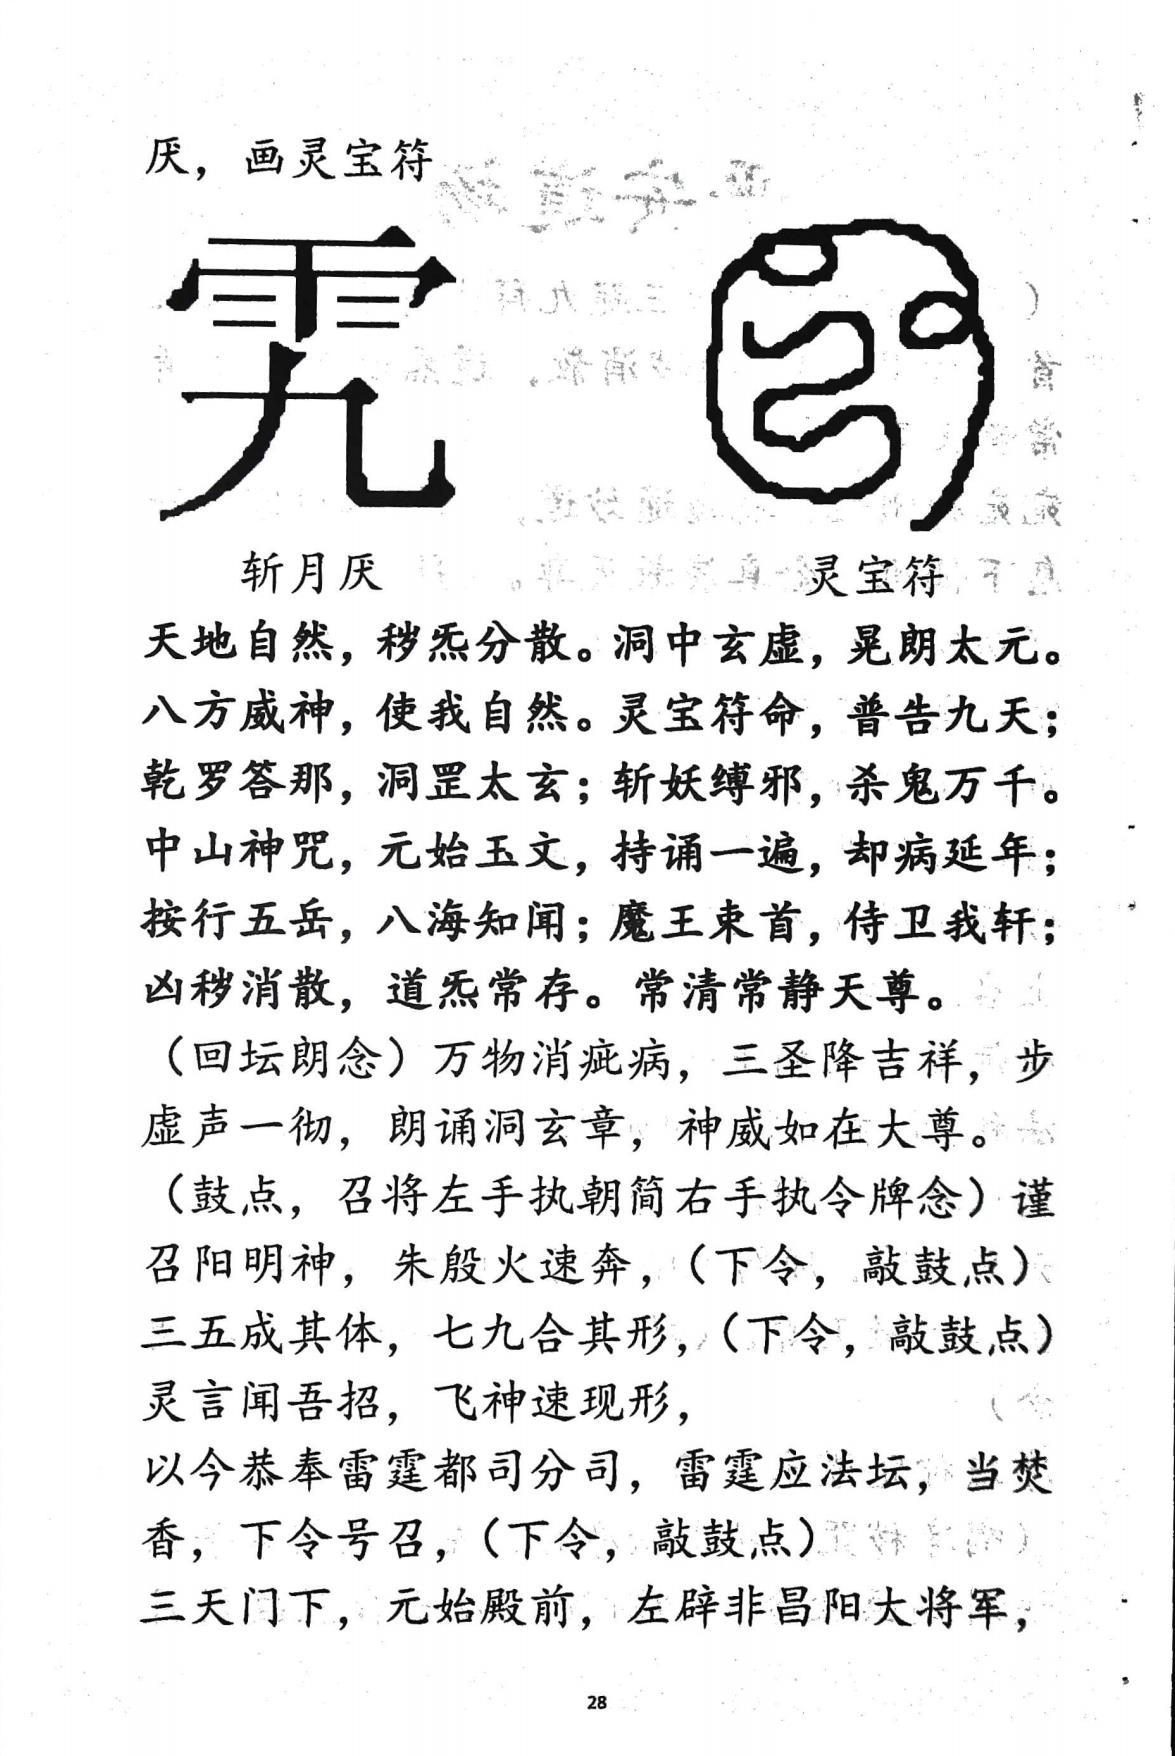 厌，画灵宝符
斩月厌 灵宝符
天地自然，秽炁分散。洞中玄虚，晃朗太元。
八方威神，使我自然。灵宝符命，普告九天；
乾罗答那，洞罡太玄；斩妖缚邪，杀鬼万千。
中山神咒，元始玉文，持诵一遍，却病延年；
按行五岳，八海知闻；魔王束首，侍卫我轩；
凶秽消散，道炁常存。常清常静天尊。
（回坛朗念）万物消疵病，三圣降吉祥，步
虚声一彻，朗诵洞玄章，神威如在大尊。
（鼓点，召将左手执朝简右手执令牌念）谨
召阳明神，朱殷火速奔，（下令，敲鼓点）
三五成其体，七九合其形，（下令，敲鼓点）
灵言闻吾招，飞神速现形，
以今恭奉雷霆都司分司，雷霆应法坛，当焚
香，下令号召，（下令，敲鼓点）
三天门下，元始殿前，左辟非昌阳大将军，
28